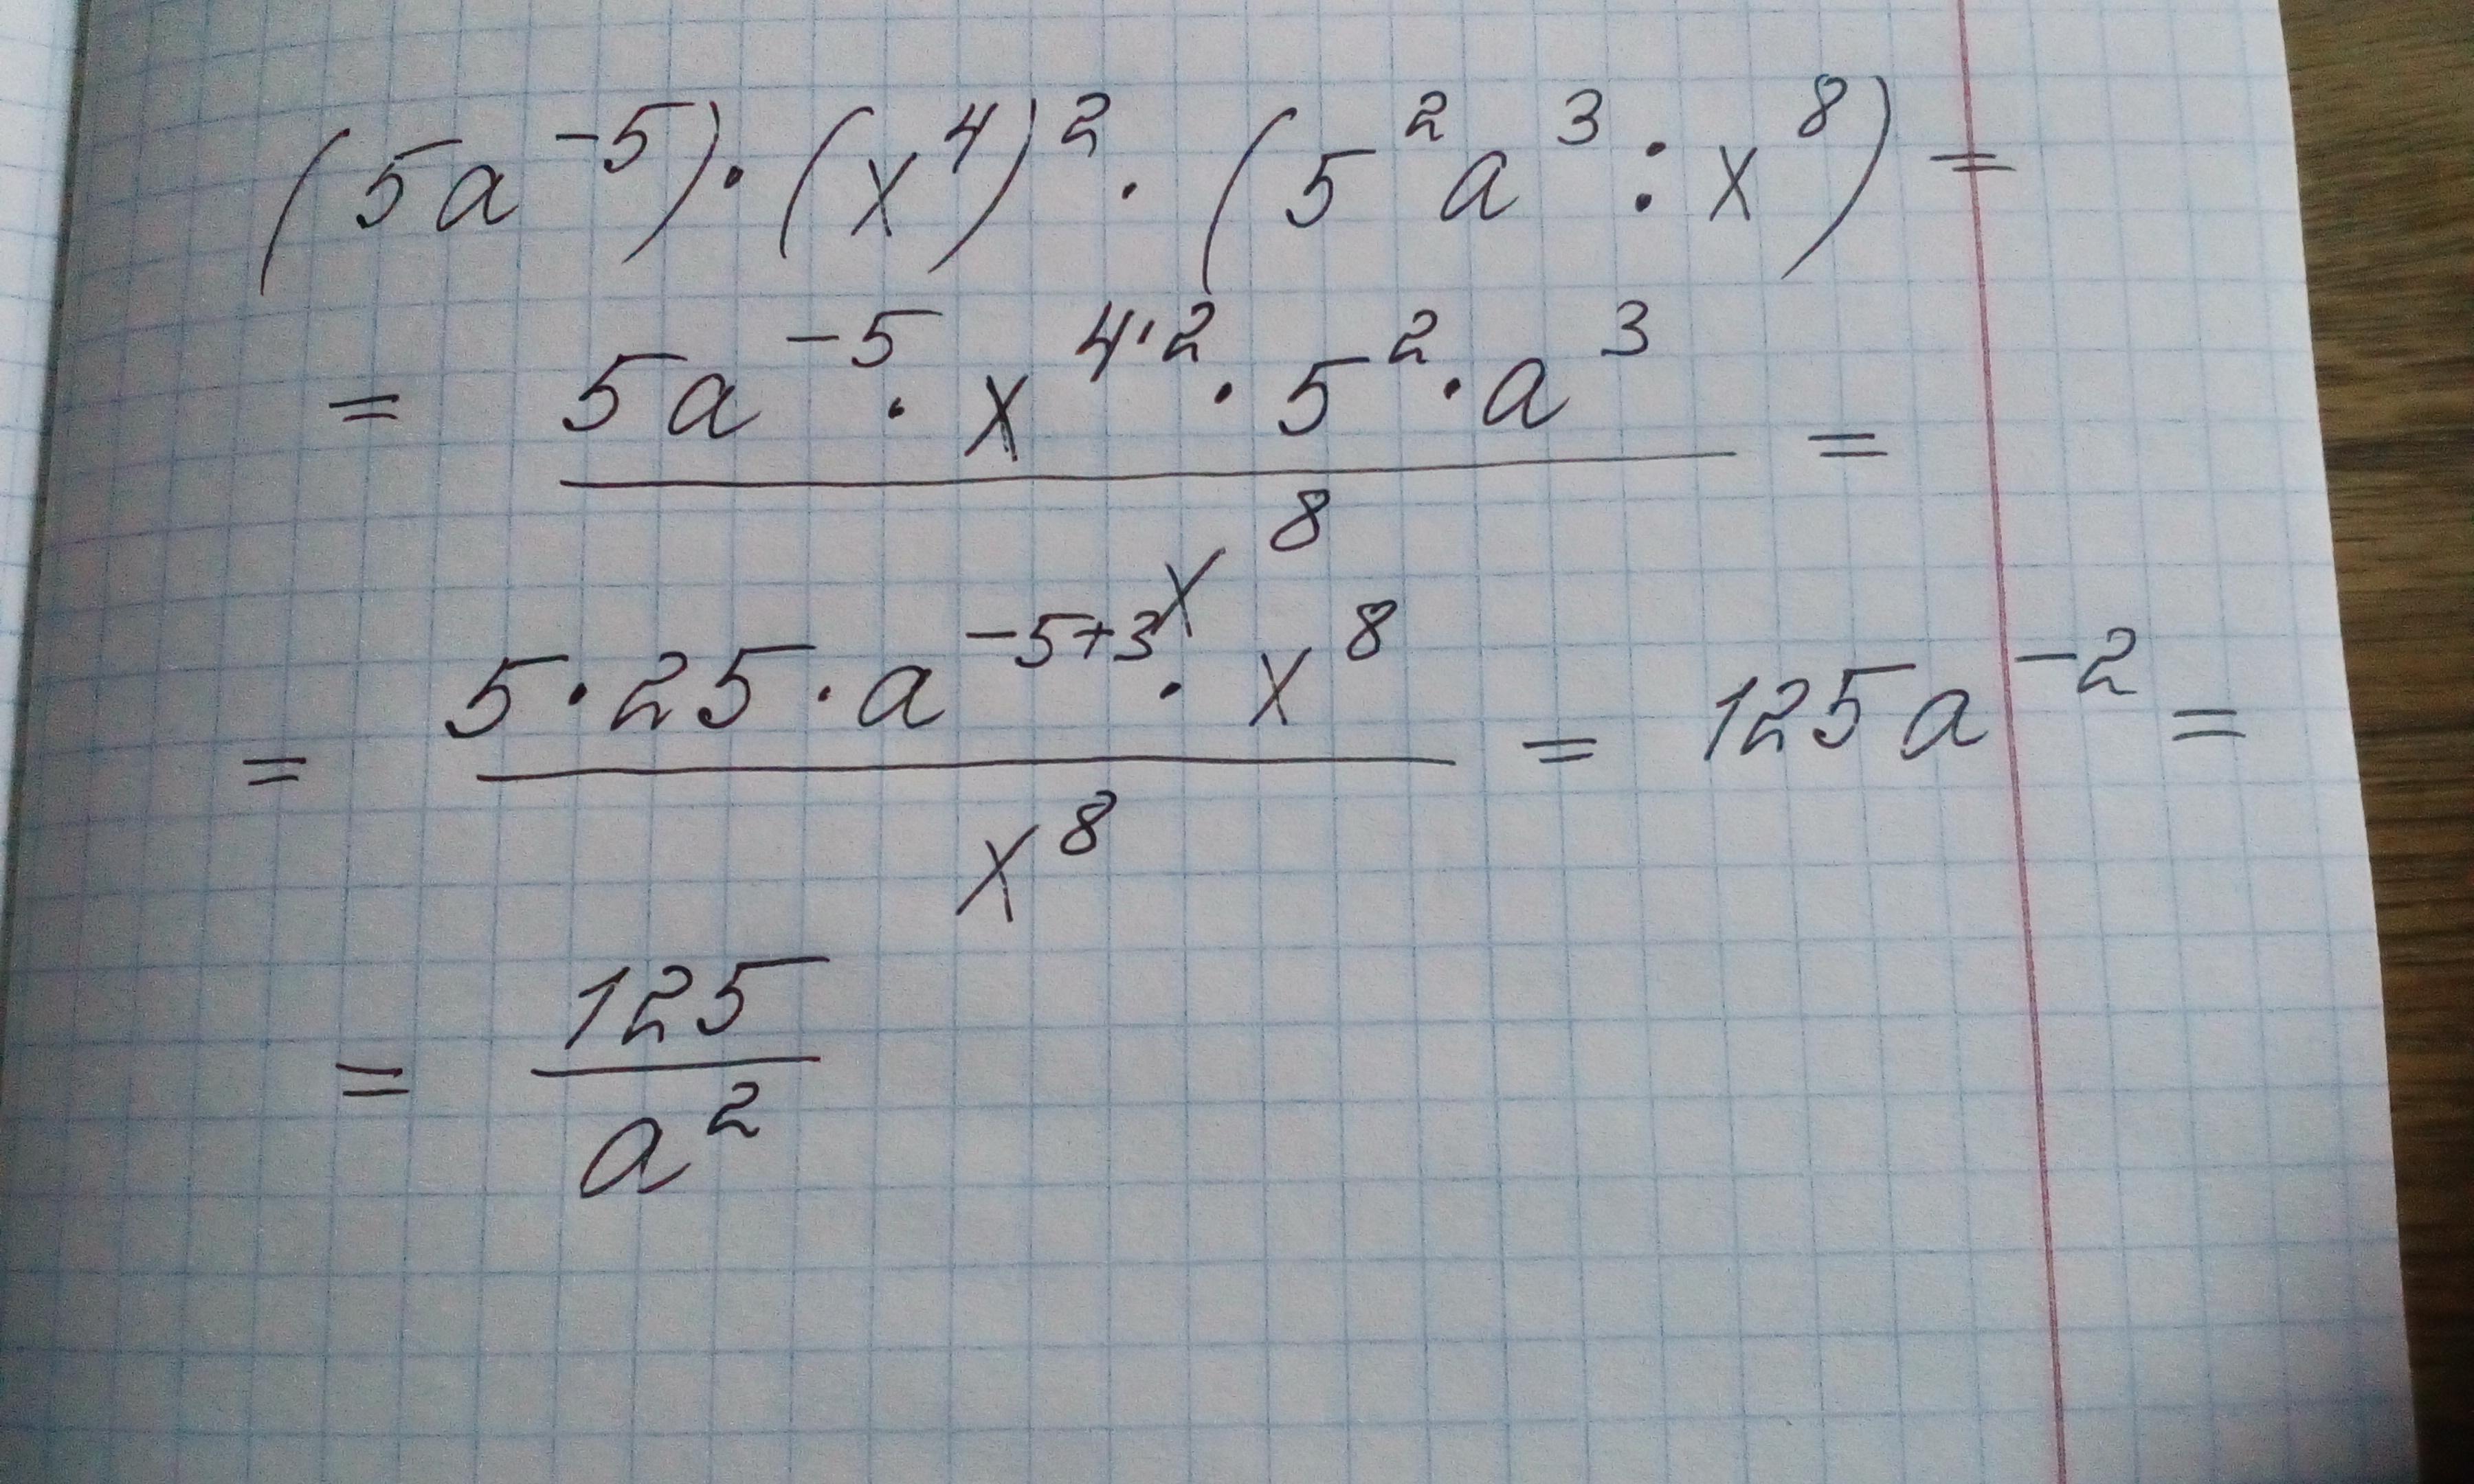 (5a⁻⁵)·(x⁴)²·(5²a³:x⁸)=
= (5a⁻⁵·x⁴'²·5²·a³)/x⁸ =
= (5·25·a⁻⁵⁺³·x⁸)/x⁸ = 125a⁻² =
= 125/a²